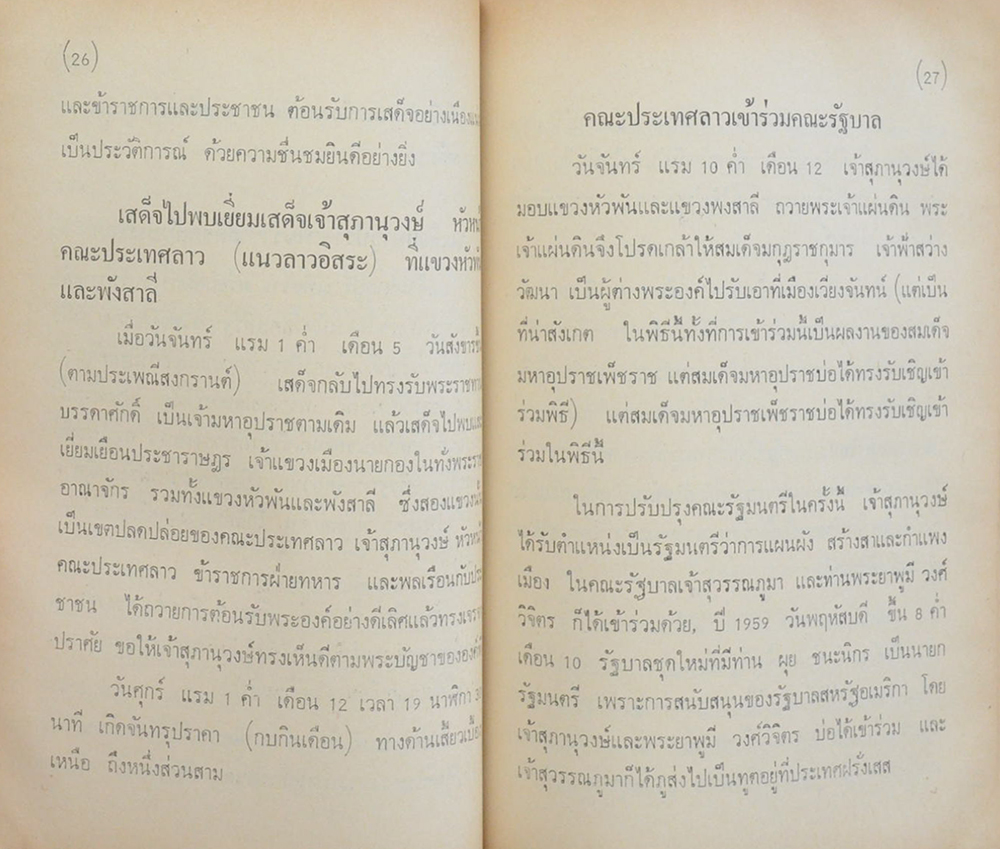 (26)
และข้าราชการและประชาชน ต้อนรับการเสด็จอย่างเนือง
เป็นประวัติการณ์ ด้วยความชื่นชมยินดีอย่างยิ่ง
เสด็จไปพบเยี่ยมเสด็จเจ้าสุภานุวงษ์ หัวหน้
คณะประเทศลาว (แนวลาวอิสระ) ที่แขวงหัวพั
และพังสาลี
เมื่อวันจันทร์ แรม 1 ค่ำ เดือน 5 วันสังขารขึ้
(ตามประเพณีสงกรานต์) เสด็จกลับไปทรงรับพระราชทา
บรรดาศักดิ์ เป็นเจ้ามหาอุปราชตามเดิม แล้วเสด็จไปพบ
เยี่ยมเยือนประชาราษฎร เจ้าแขวงเมืองนายกองในทั่งพระรา
อาณาจักร รวมทั้งแขวงหัวพันและพังสาลี ซึ่งสองแขวง
เป็นเขตปลดปล่อยของคณะประเทศลาว เจ้าสุภานุวงษ์ หัวหน้
คณะประเทศลาว ข้าราชการฝ่ายทหาร และพลเรือนกับประ
ชาชน ได้ถวายการต้อนรับพระองค์อย่างดีเลิศแล้วทรงเจร
ปราศัย ขอให้เจ้าสุภานุวงษ์ทรงเห็นดีตามพระบัญชาขององค์
วันศุกร์ แรม 1 ค่ำ เดือน 12 เวลา 19 นาฬิกา
นาที เกิดจันทรุปราคา (กบกินเดือน) ทางด้านเสี้ยวเบื้อ
เหนือ ถึงหนึ่งส่วนสาม
(27)
คณะประเทศลาวเข้าร่วมคณะรัฐบาล
วันจันทร์ แรม 10 ค่ำ เดือน 12 เจ้าสุภานุวงษ์ได้
มอบแขวงหัวพันและแขวงพงสาลี ถวายพระเจ้าแผ่นดิน พระ
เจ้าแผ่นดินจึงโปรดเกล้าให้สมเด็จมกุฎราชกุมาร เจ้าฟ้าสว่าง
วัฒนา เป็นผู้ต่างพระองค์ไปรับเอาที่เมืองเวียงจันทน์ (แต่เป็น
ที่น่าสังเกต ในพิธีนี้ทั้งที่การเข้าร่วมนี้เป็นผลงานของสมเด็จ
มหาอุปราชเพ็ชราช แต่สมเด็จมหาอุปราชบ่อได้ทรงรับเชิญเข้า
ร่วมพิธี) แต่สมเด็จมหาอุปราชเพ็ชราชบ่อได้ทรงรับเชิญเข้า
ร่วมในพิธีนี้
ในการปรับปรุงคณะรัฐมนตรีในครั้งนี้ เจ้าสุภานุวงษ์
ได้รับตำแหน่งเป็นรัฐมนตรีว่าการแผนผัง สร้างสาและกำแพง
เมือง ในคณะรัฐบาลเจ้าสุวรรณภูมา และท่านพระยาพูมี วงศ์
วิจิตร ก็ได้เข้าร่วมด้วย, ปี 1959 วันพฤหัสบดี ขึ้น 8 ค่ำ
เดือน 10 รัฐบาลชุดใหม่ที่มีท่าน ผุย ชนะนิกร เป็นนายก
รัฐมนตรี เพราะการสนับสนุนของรัฐบาลสหรัฐอเมริกา โดย
เจ้าสุภานุวงษ์และพระยาพูมี วงศ์วิจิตร บ่อได้เข้าร่วม และ
เจ้าสุวรรณภูมาก็ได้ภูส่งไปเป็นทูตอยู่ที่ประเทศฝรั่งเสส